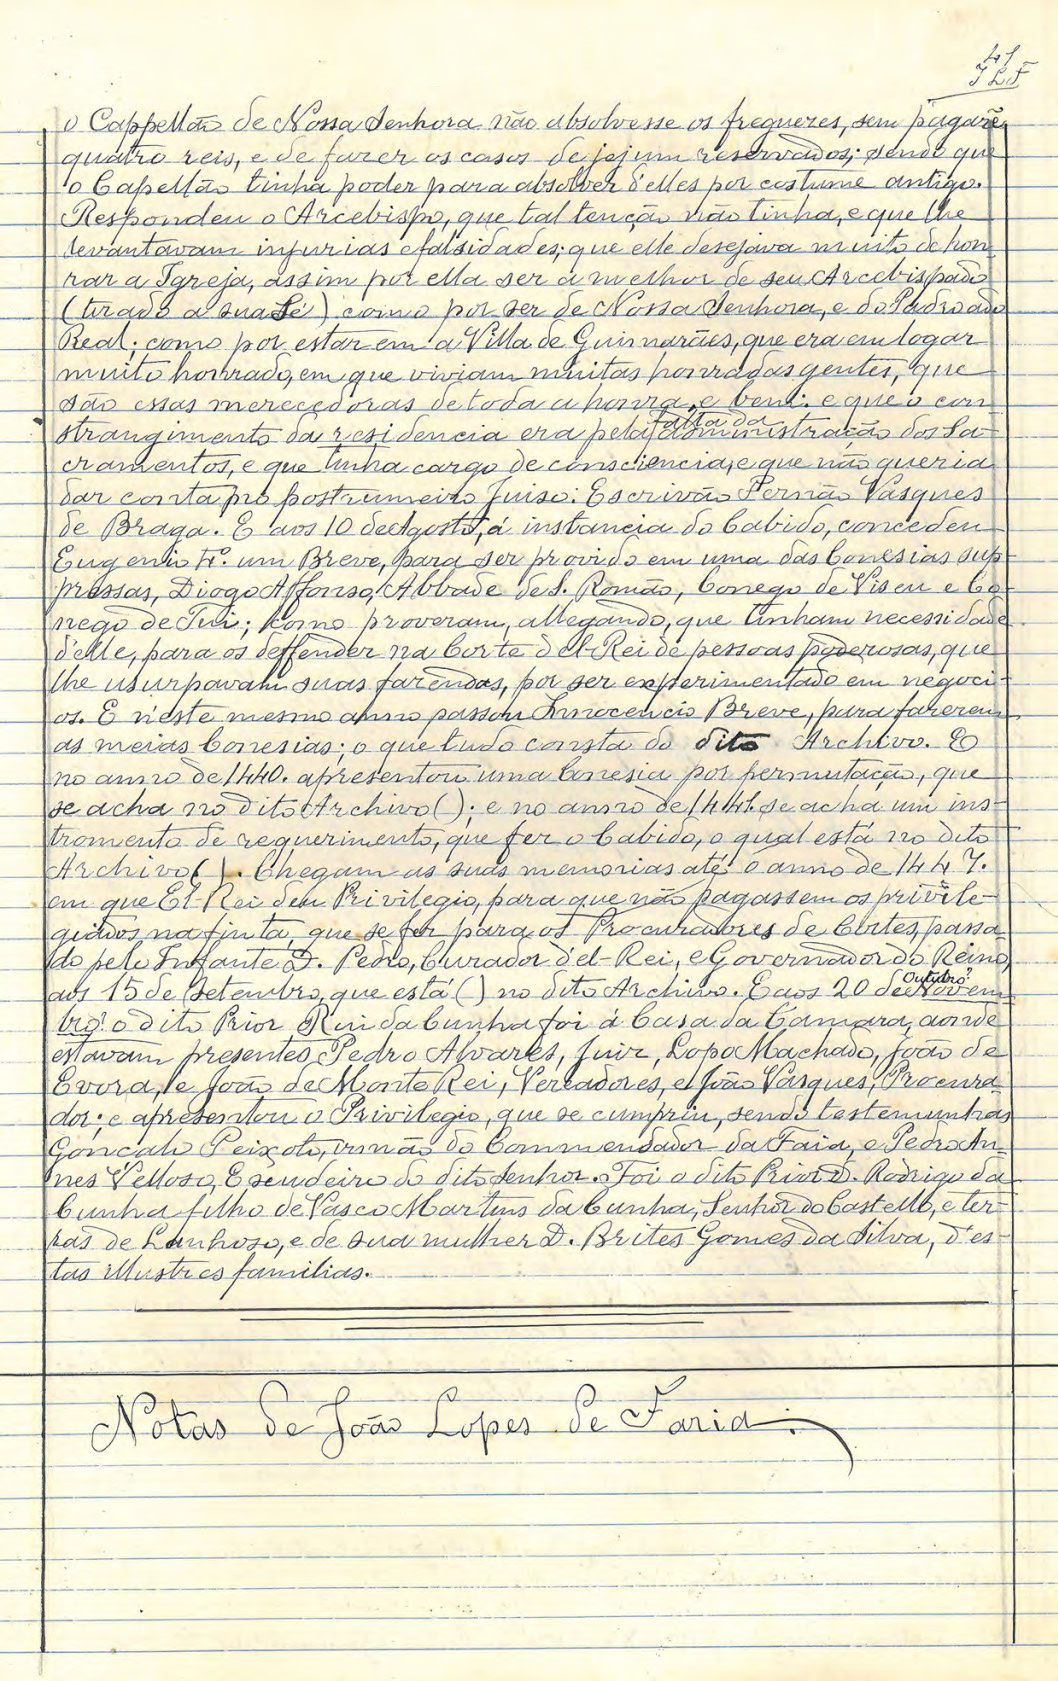 41
JLF
o Cappellão de Nossa Senhora não absolvesse os freguezes, sem pagarẽ
quatro reis, e de fazer os casos de jejum reservados; sendo que
o Capellão tinha poder para absolver d'elles por costume antigo.
Respondeu o Arcebispo, que tal tenção não tinha, e que lhe
levantavam injurias e falsidades; que elle desejava muito de hon-
rar a Igreja, assim por ella ser a melhor de seu Arcebispado
(tirado a sua Sé) como por ser de Nossa Senhora, e do Padroado
Real; como por estar em a Villa de Guimarães, que era em logar
muito honrado, em que viviam muitas honradas gentes, que
são essas merecedoras de toda a honra, e bem; e que o con-
falta da
strangimento da residencia era pela administração dos Sa-
cramentos, e que tinha cargo de consciencia, e que não queria
dar conta pro postrumeiro Juiso: Escrivão Fernão Vasques
de Braga. E aos 10 de Agosto, á instancia do Cabido, concedeu
Eugenio 4º. um Breve, para ser provido em uma das Conesias sup-
pressas, Diogo Affonso, Abbade de S. Romão, Conego de Viseu e Co-
nego de Tui; como proveram, allegando, que tinham necessidade
d'elle, para os deffender na Corte d'el-Rei de pessoas poderosas, que
lhe usurpavam suas fazendas, por ser experimentado em negoci-
os. E n'este mesmo anno passou Innocencio Breve, para fazerem
as meias Conesias; o que tudo consta do dito Archivo. E
no anno de 1440. apresentou uma Conesia por permutação, que
se acha no dito Archivo ( ); e no anno de 1441. se acha um ins-
tromento de requerimento, que fez o Cabido, o qual está no dito
Archivo ( ). Chegam as suas memorias até o anno de 1447.
em que El-Rei deu Privilegio, para que não pagassem os privile-
giados na finta, que se fez para os Procuradores de Cortes, passa-
do pelo Infante D. Pedro, Curador d'el-Rei, e Governador do Reino,
aos 15 de Setembro, que está ( ) no dito Archivo. E aos 20 de Novem-
Outubro?
bro? o dito Prior Rui da Cunha foi á Casa da Camara, aonde
estavam presentes Pedro Alvares, Juiz, Lopo Machado, João de
Evora, e João de Monte Rei, Vereadores, e João Vasques, Procura-
dor; e apresentou o Privilegio, que se cumpriu, sendo testemunhas
Gonçalo Peixoto, irmão do Commendador da Faia, e Pedro An-
nes Velloso, Escudeiro do dito Senhor. Foi o dito Prior D. Rodrigo da
Cunha filho de Vasco Martins da Cunha, Senhor do Castello, e ter-
ras de Lanhoso, e de sua mulher D. Brites Gomes da Silva, d'es-
tas illustres familias.
Notas de João Lopes de Faria.